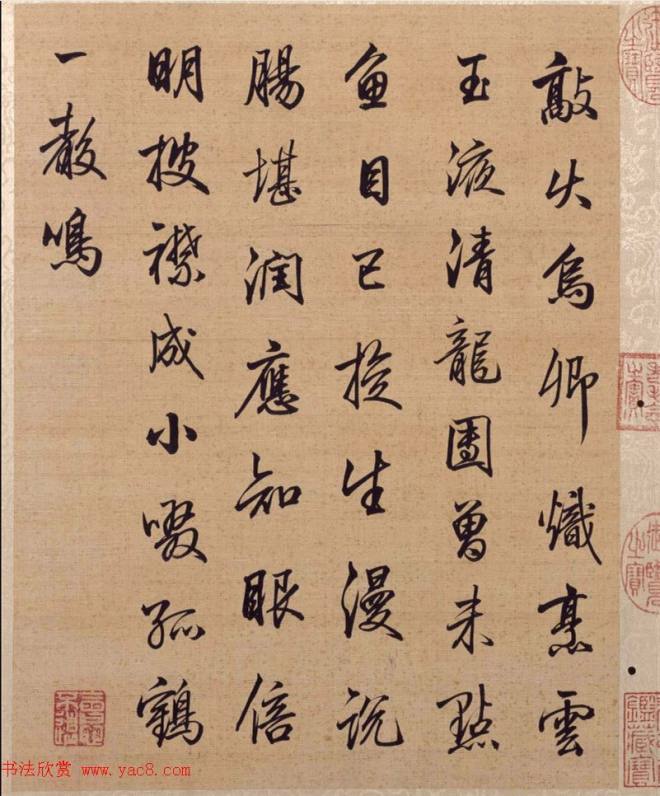 敲火烏卿熾烹雲
玉液清龍團曾未點
魚目已撿生漫說
腸堪潤應知眼倍
明披襟成小啜孤鶴
一聲鳴
书法欣赏 www.yac8.com